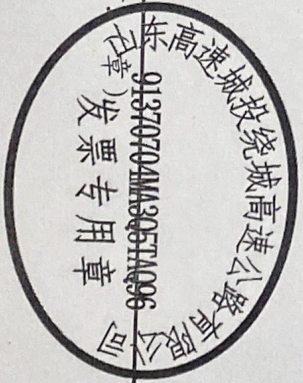 东高速城投绕城高速公路有限公司
91370704MA3Q5TAQ96
发票专用章
章)